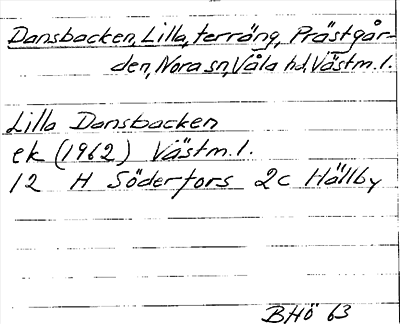 Dansbacken, Lilla, terräng, Prästgår-
den, Nora sn, Våla hd, Västm. l.
Lilla Dansbacken
ek (1962) Västm. l.
12 H Söderfors 2c Hällby
BHÖ 63